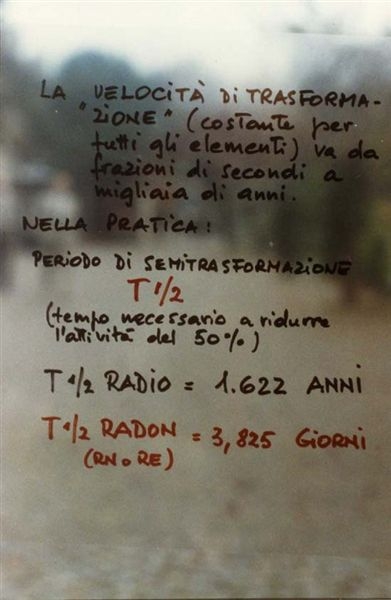 LA VELOCITÀ DI TRASFORMA-
"ZIONE" (costante per
tutti gli elementi) va da
frazioni di secondi a
migliaia di anni.
NELLA PRATICA:
PERIODO DI SEMITRASFORMAZIONE
T 1/2
(tempo necessario a ridurre
l'attività del 50%)
T 1/2 RADIO = 1.622 ANNI
T 1/2 RADON = 3,825 GIORNI
(RN o RE)